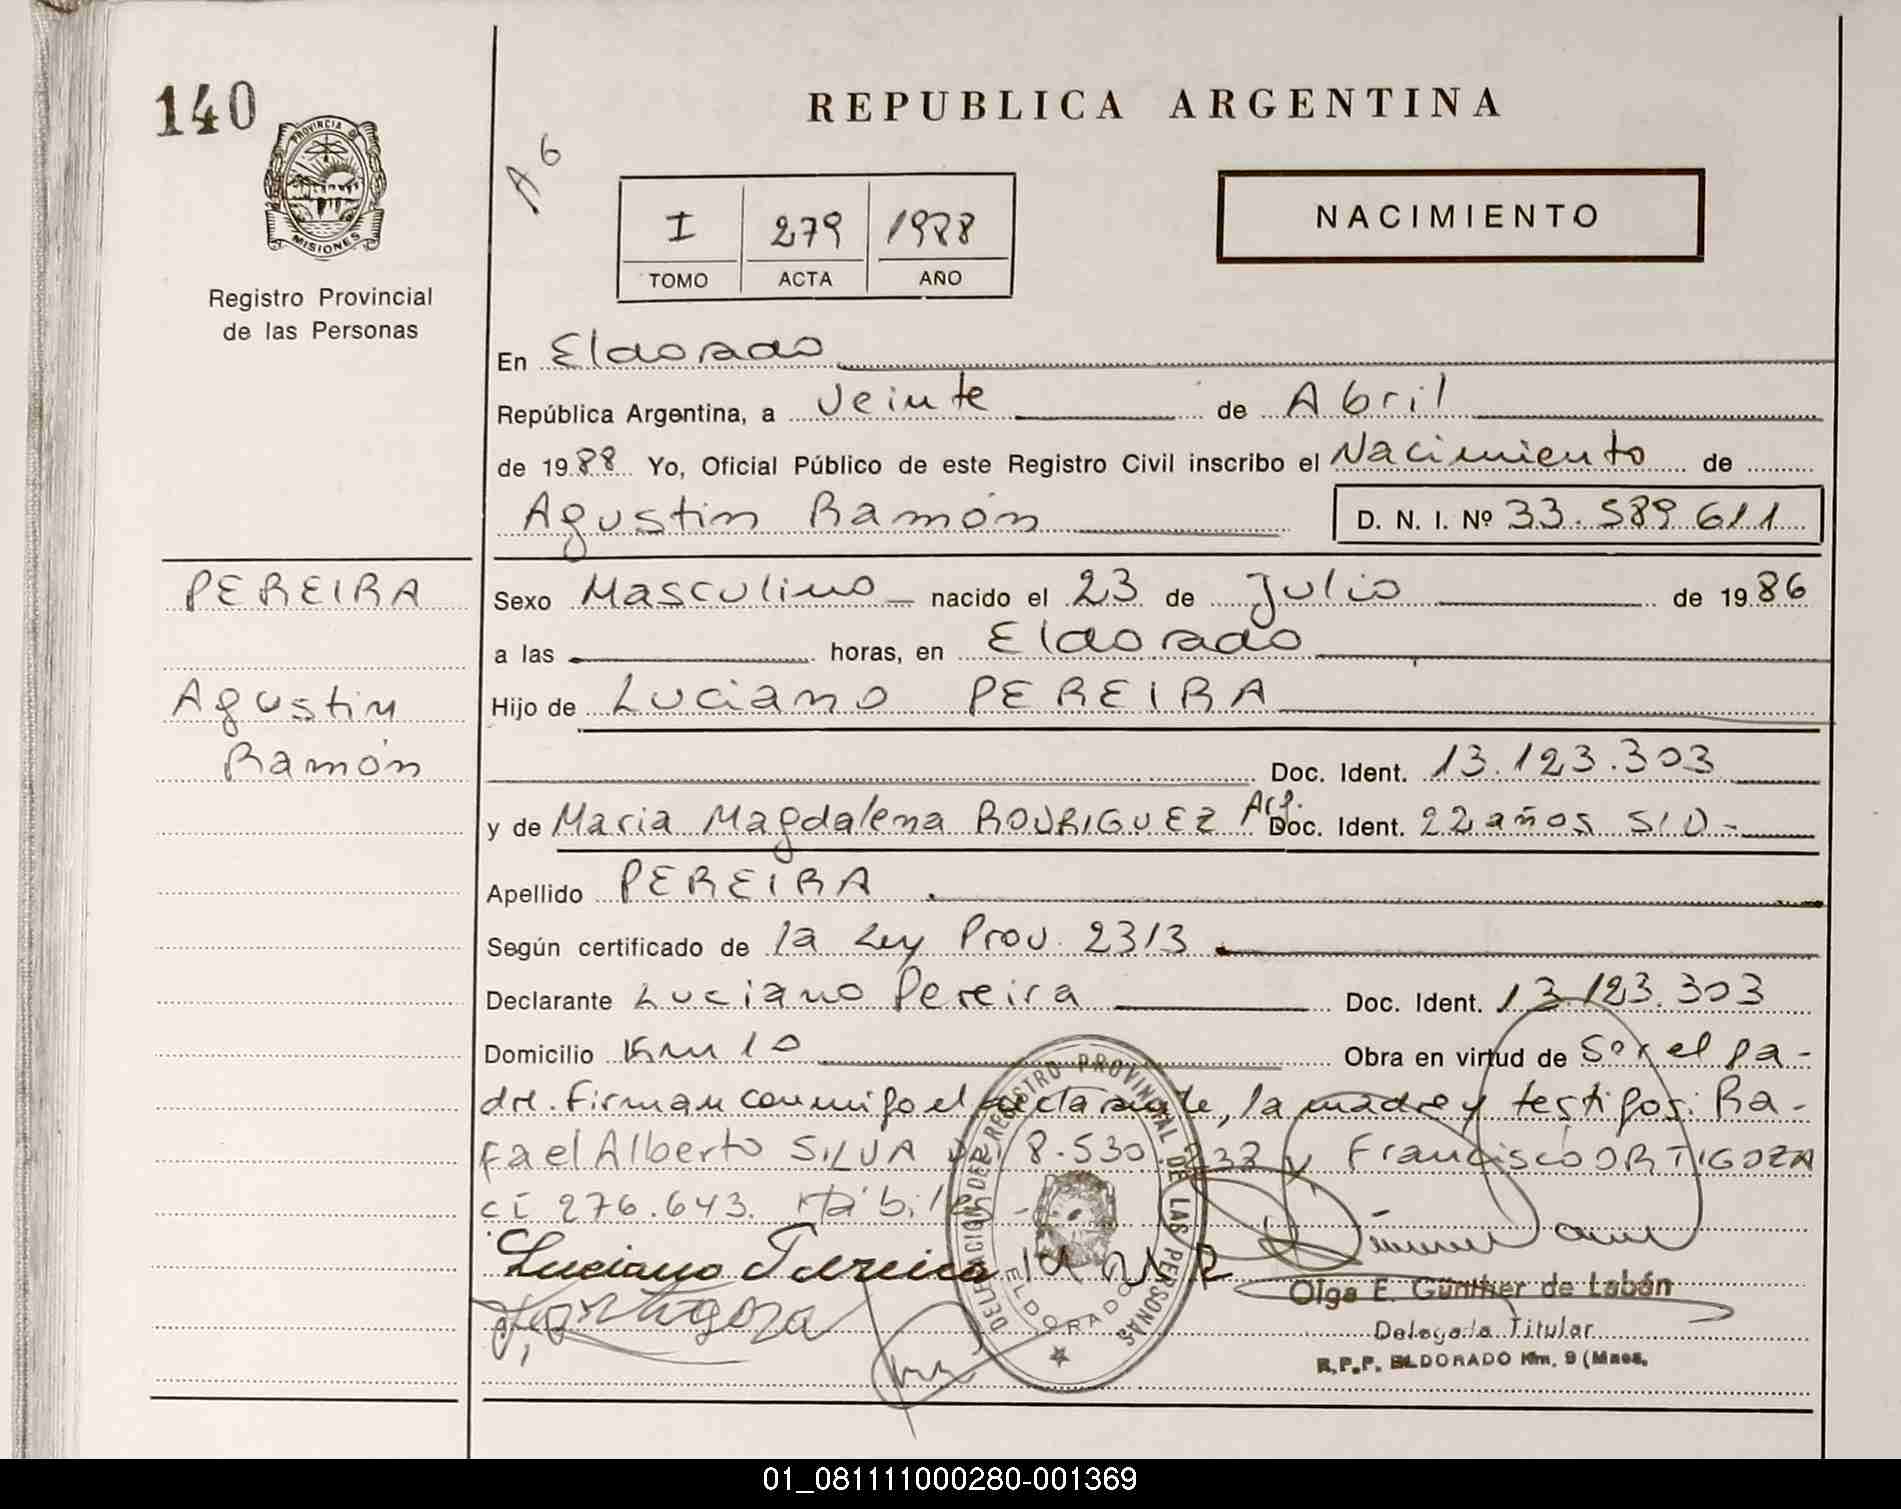 140
REPUBLICA ARGENTINA
PROVINCIA DE
MISIONES
A 6
I 279 1988
TOMO ACTA AÑO
NACIMIENTO
Registro Provincial
de las Personas
En Eldorado
República Argentina, a Veinte de Abril
de 1988 Yo, Oficial Público de este Registro Civil inscribo el Nacimiento de
Agustin Ramón D. N. I. Nº 33.589.611
PEREIRA
Agustin
Ramón
Sexo Masculino nacido el 23 de Julio de 1986
a las horas, en Eldorado
Hijo de Luciano PEREIRA
Doc. Ident. 13.123.303
y de Maria Magdalena RODRIGUEZ Arg. Doc. Ident. 22 años S/D-
Apellido PEREIRA
Según certificado de la Ley Prov. 2313
Declarante Luciano Pereira Doc. Ident. 13.123.303
Domicilio Km 10 Obra en virtud de Ser el pa-
dre. Firman conmigo el declarante, la madre y testigos: Ra-
fael Alberto SILVA 8.530. y Francisco ORTIGOZA
CI 276.643. Hábiles-
Luciano Pereira
DELEGACION DEL REGISTRO PROVINCIAL DE LAS PERSONAS
ELDORADO
Olga E. Günther de Labán
Delegada Titular
R.P.P. ELDORADO Km. 9 (Mnes.
01_081111000280-001369